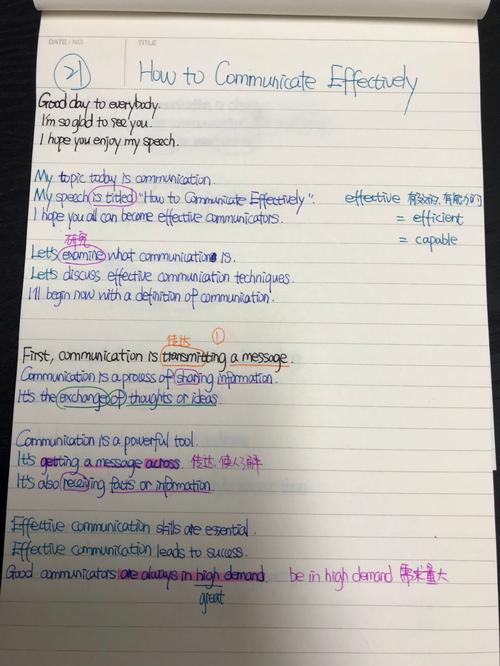 DATE / NO.
TITLE
21
How to Communicate Effectively
Good day to everybody.
I'm so glad to see you.
I hope you enjoy my speech.
My topic today is communication.
My speech is titled "How to Communicate Effectively".
effective 有效的, 有能力的
I hope you all can become effective communicators.
= efficient
研究
= capable
Let's examine what communication is.
Let's discuss effective communication techniques.
I'll begin now with a definition of communication.
传达 ①
First, communication is transmitting a message.
Communication is a process of sharing information.
It's the exchange of thoughts or ideas.
Communication is a powerful tool.
It's getting a message across. 传达, 使人了解
It's also receiving facts or information.
Effective communication skills are essential.
Effective communication leads to success.
Good communicators are always in high demand. be in high demand 需求量大
great